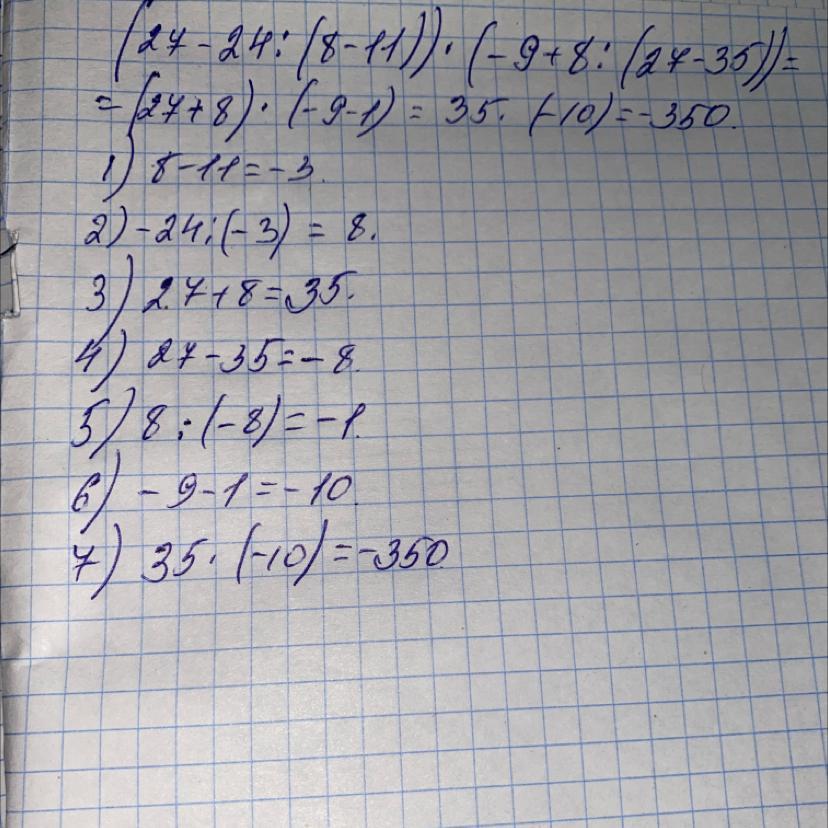 (27-24:(8-11))·(-9+8:(27-35))=
=(27+8)·(-9-1)=35·(-10)=-350.
1) 8-11=-3.
2) -24:(-3)=8.
3) 27+8=35.
4) 27-35=-8.
5) 8:(-8)=-1.
6) -9-1=-10.
7) 35·(-10)=-350